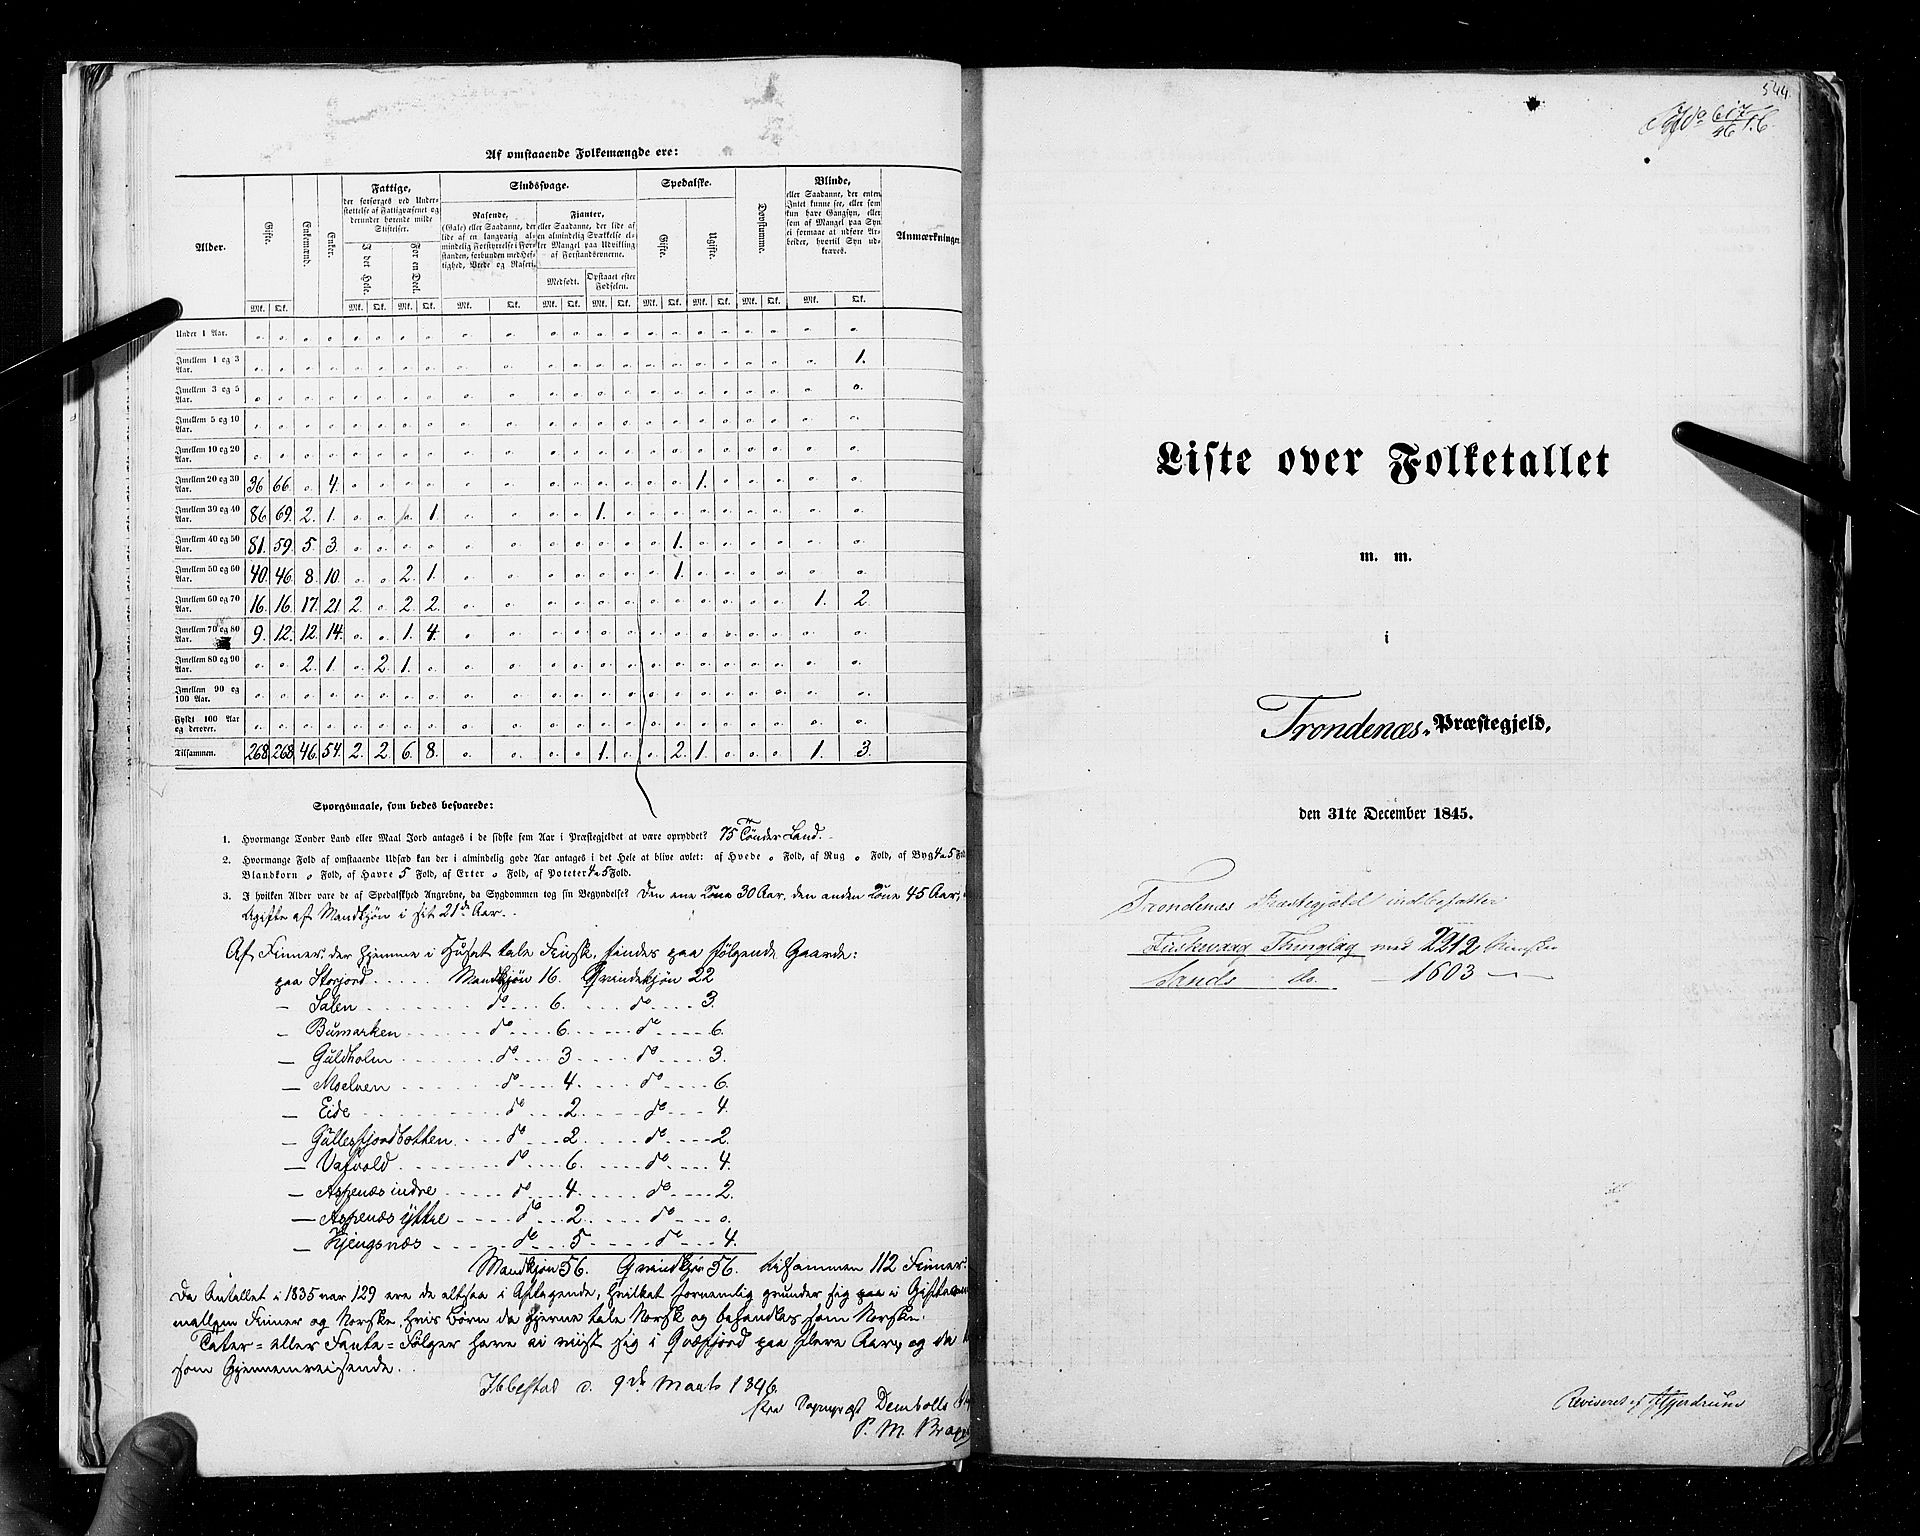 Af omstaaende Folkemængde ere:
Alder.
Gifte.
Enkemænd.
Enker.
Fattige,
der forsørges ved Under-
støttelse af Fattigvæsenet og
derunder hørende milde
Stiftelser.
I det Hele.
For en Deel.
Sindssvage.
Rasende,
(Gale) eller Saadanne, der
lide af en langvarig al-
mindelig Forstyrrelse i For-
standen, forbunden med Hef-
tighed, Vrede og Raseri.
Fianter,
eller Saadanne, der lide af
en almindelig Svækkelse el-
ler Mangel paa Udvikling
af Forstandsevnerne.
Medfødt.
Opstaaet efter
Fødselen.
Spedalske.
Gifte.
Ugifte.
Døvstumme.
Blinde,
eller Saadanne, der enten
Intet kunne see, eller som
kun have Gangsyn, eller
som af Mangel paa Syn
ei formaae at udføre Ar-
beider, hvortil Syn ud-
kræves.
Anmærkninger.
Mk. Qk. Mk. Qk. Mk. Qk. Mk. Qk. Mk. Qk. Mk. Qk. Mk. Qk. Mk. Qk. Mk. Qk. Mk. Qk.
Under 1 Aar. o. o. o. o. o. o. o. o. o. o. o. o. o. o. o. o. o. o. o. o. o. o.
Imellem 1 og 3 Aar. o. o. o. o. o. o. o. o. o. o. o. o. o. o. o. o. o. o. o. o. o. 1.
Imellem 3 og 5 Aar. o. o. o. o. o. o. o. o. o. o. o. o. o. o. o. o. o. o. o. o. o. o.
Imellem 5 og 10 Aar. o. o. o. o. o. o. o. o. o. o. o. o. o. o. o. o. o. o. o. o. o. o.
Imellem 10 og 20 Aar. o. o. o. o. o. o. o. o. o. o. o. o. o. o. o. o. o. o. o. o. o. o.
Imellem 20 og 30 Aar. 36 66. o. 4. o. o. o. o. o. o. o. o. o. o. o. o. 1. o. o. o. o. o.
Imellem 30 og 40 Aar. 86 69. 2. 1. o. o. o. 1. o. o. o. o. 1. o. o. o. o. o. o. o. o. o.
Imellem 40 og 50 Aar. 81. 59. 5. 3. o. o. o. o. o. o. o. o. o. o. o. 1. o. o. o. o. o. o.
Imellem 50 og 60 Aar. 40. 46. 8. 10. o. o. 2. 1. o. o. o. o. o. o. o. 1. o. o. o. o. o. o.
Imellem 60 og 70 Aar. 16. 16. 17. 21 2. o. 2. 2. o. o. o. o. o. o. o. o. o. o. o. o. 1. 2.
Imellem 70 og 80 Aar. 9. 12. 12. 14. o. o. 1. 4. o. o. o. o. o. o. o. o. o. o. o. o. o. o.
Imellem 80 og 90 Aar. o. o. 2. 1. o. 2. 1. o. o. o. o. o. o. o. o. o. o. o. o. o. o. o.
Imellem 90 og 100 Aar. o. o. o. o. o. o. o. o. o. o. o. o. o. o. o. o. o. o. o. o. o. o.
Fyldt 100 Aar og derover. o. o. o. o. o. o. o. o. o. o. o. o. o. o. o. o. o. o. o. o. o. o.
Tilsammen. 268 268 46. 54. 2. 2. 6. 8. o. o. o. o. 1. o. o. 2. 1. o. o. o. 1. 3.
Spørgsmaale, som bedes besvarede:
1. Hvormange Tønder Land eller Maal Jord antages i de sidste fem Aar i Præstegjeldet at være opryddet? 75 Tønder Land.
2. Hvormange Fold af omstaaende Udsæd kan der i almindelig gode Aar antages i det Hele at blive avlet: af Hvede o Fold, af Rug o Fold, af Byg 4 a 5 Fold
Blandkorn o Fold, af Havre 5 Fold, af Erter o Fold, af Poteter 4 a 5 Fold.
3. I hvilken Alder vare de af Spedalskhed Angrebne, da Sygdommen tog sin Begyndelse? Den ene Kone 30 Aar, den anden Kone 45 Aar,
Ugifte af Mandkjøn i sit 21de Aar.
Af Finner, der hjemme i Huset tale Finsk, findes paa følgende Gaarde:
paa Storjord Mandkjøn 16. Qvindekjøn 22
— Salen do 6. do 3.
— Bumarken do 6. do 6.
— Guldholm do 3. do 3.
— Moelven do 4. do 6.
— Eide do 2. do 4.
— Gullesfjordbotten do 2. do 2.
— Vasvold do 6. do 4.
— Aspenæs indre do 4. do 2.
— Aspenæs yttre do 2. do o.
— Kjengsnæs do 5. do 4.
Mandkjøn 56. Qvindkjøn 56. tilsammen 112 Finner.
Da Antallet i 1835 var 129 ere de altsaa i Aftagende, hvilket fornemlig grunder sig paa i Giftermaal
mellem Finner og Norske, hvis Børn da gjerne tale Norsk og behandles som Norske.
Tater= eller Fante=Følger have ei viist sig i Qvæfjord paa flere Aar, og da
som Gjennemreisende.
Ibbestad d. 9de Marts 1846.
P. M.
544.
617
46
Liste over Folketallet
m. m.
i
Trondenæs Præstegjeld,
den 31te December 1845.
Trondenæs Præstegjeld indbefatter
Thinglag med 2212 Mennesker
Sands do. — 1603 —
Revideret af